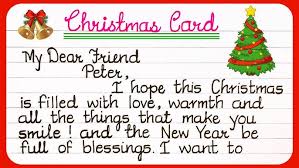 Christmas Card
My Dear Friend
Peter,
I hope this Christmas
is filled with love, warmth and
all the things that make you
smile ! and the New Year be
full of blessings. I want to